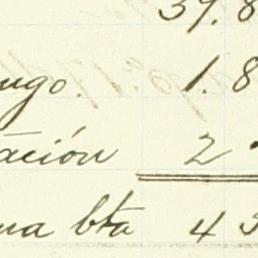 39.8
ugo. 1.8
ación 2
ma bta 43